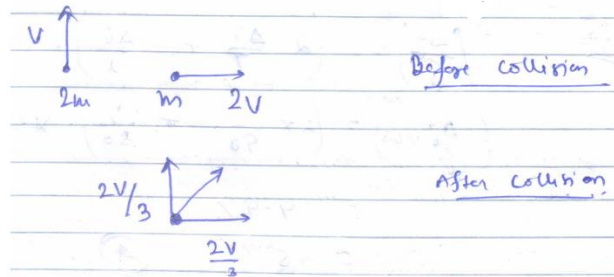 V
2m m 2V
Before collision
2V/3
2V/3
After collision